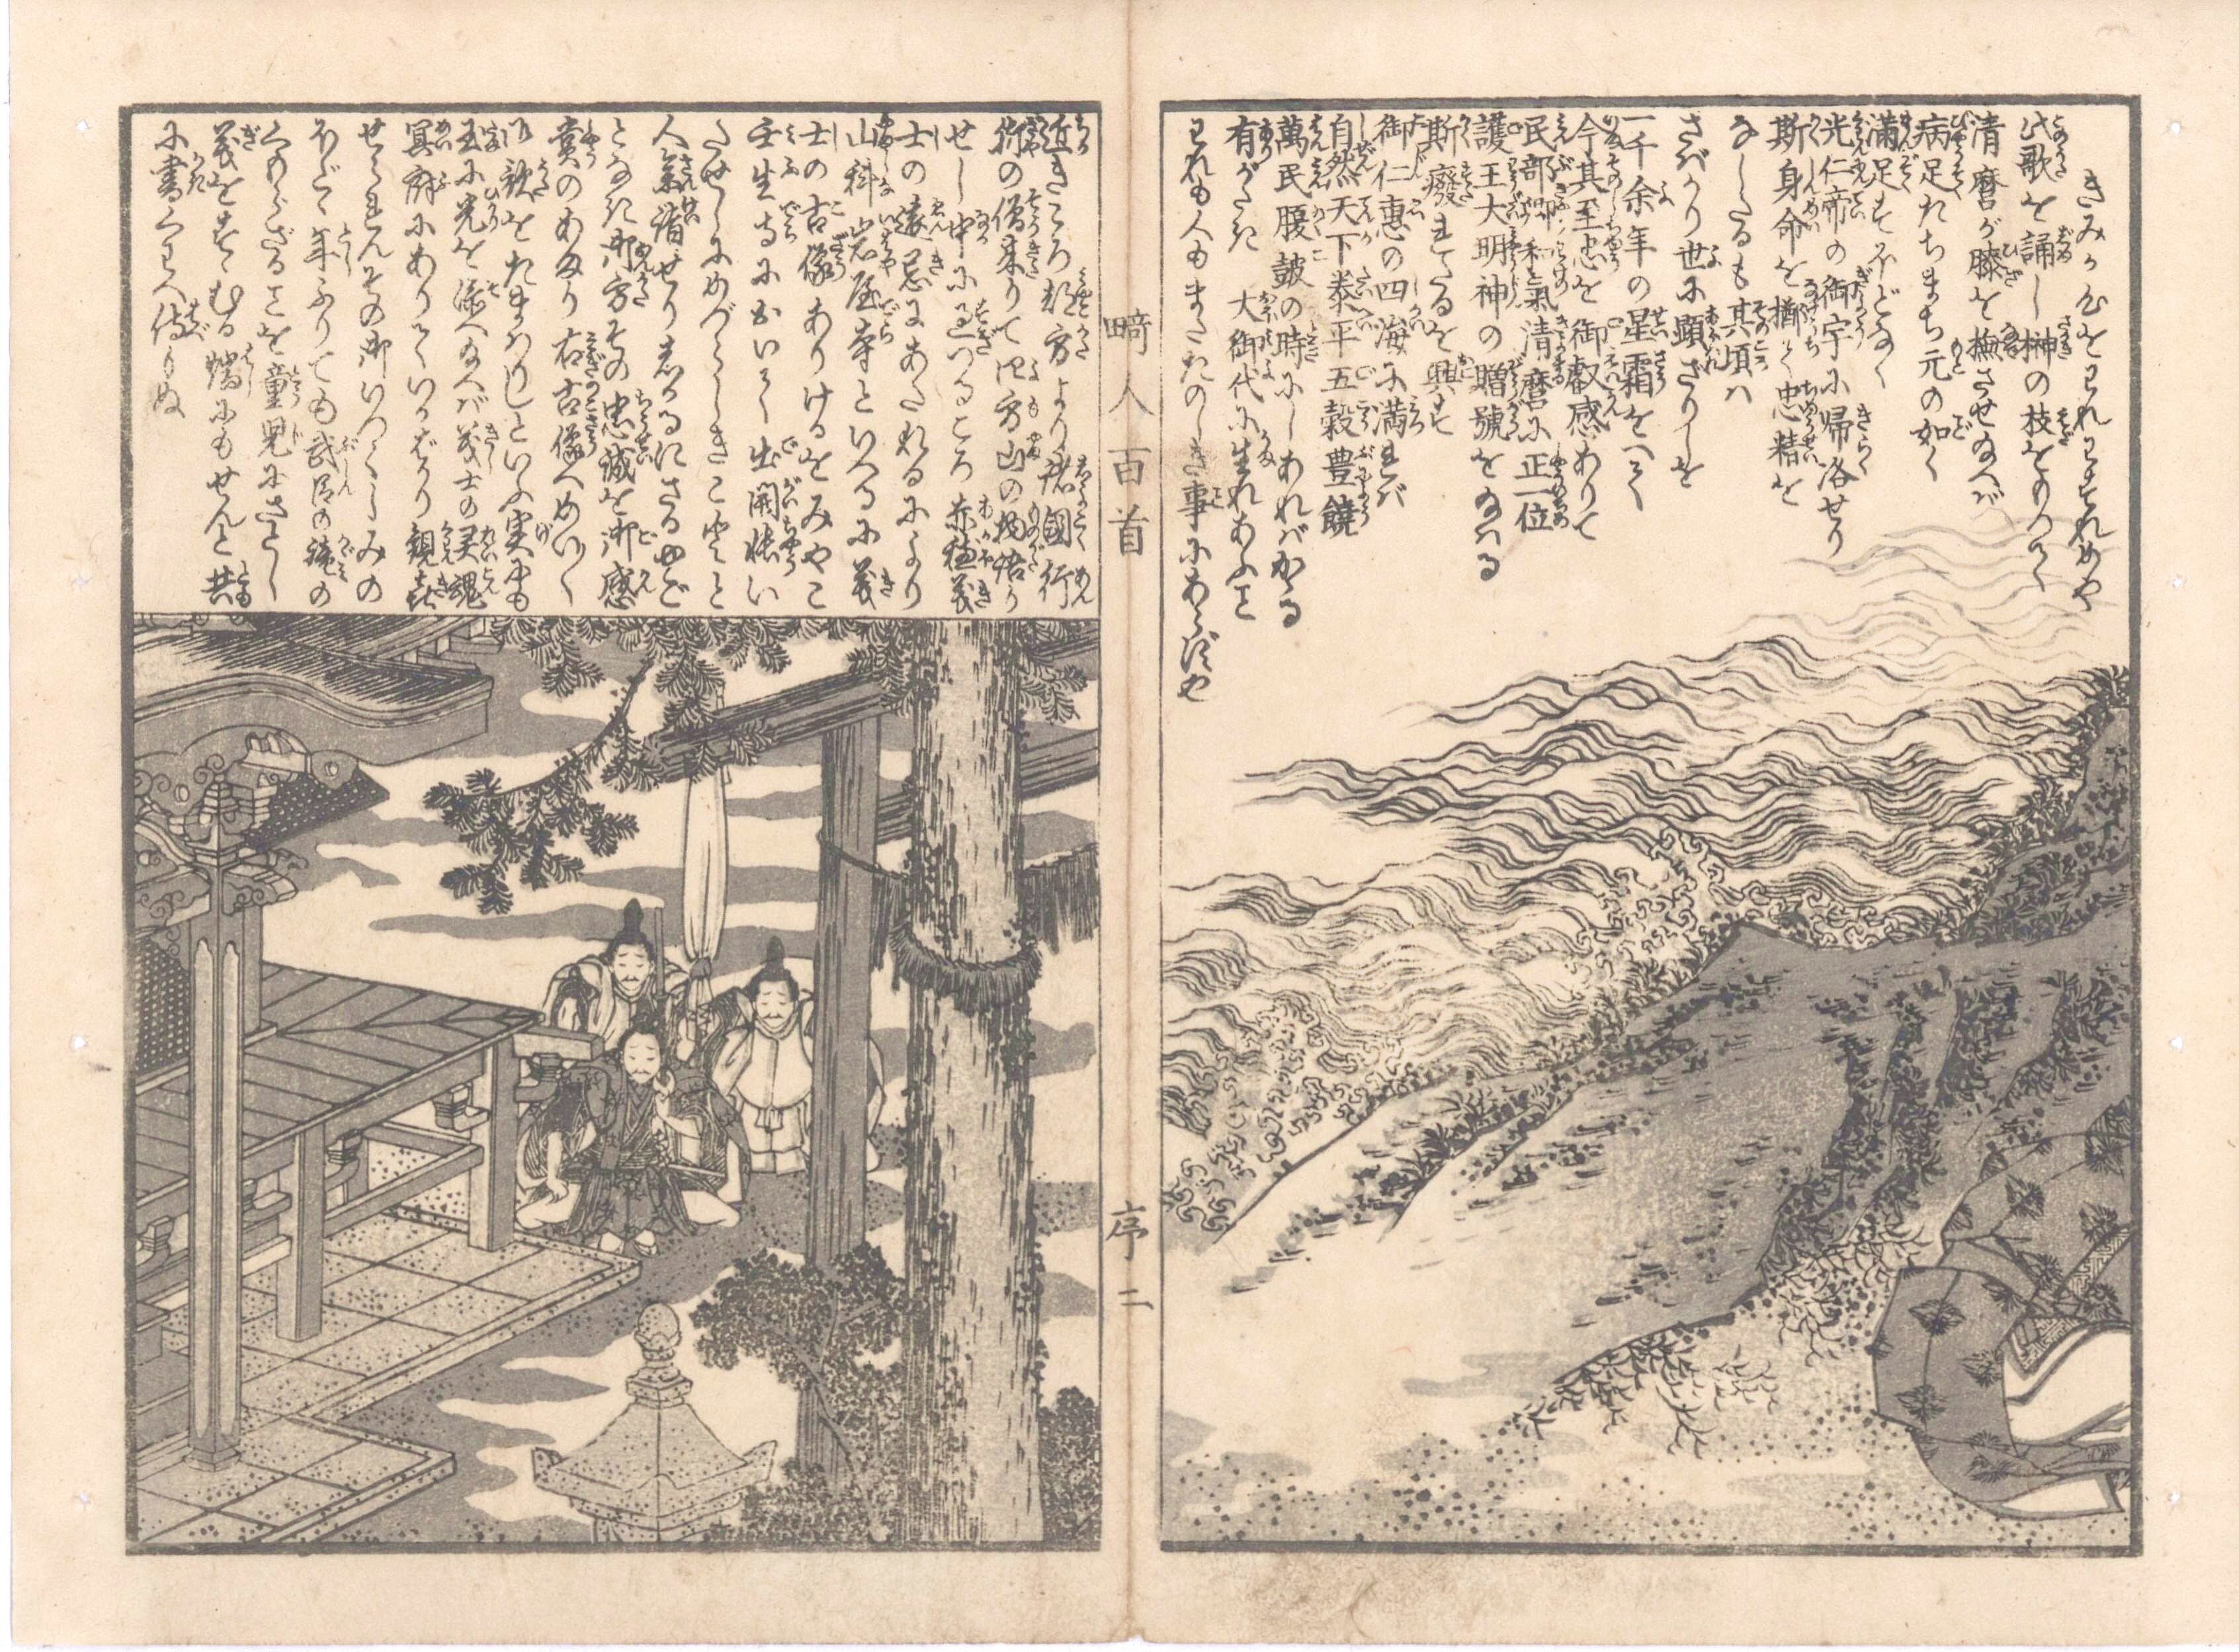 きみか為をわれわすれめや
此歌を誦し榊の枝をとりて
清麿が膝を撫させ給へば
病足たちまち元の如く
満足すほどなく
光仁帝の御宇に帰洛せり
斯身命を擲て忠精を
なしたるも其頃ハ
さばかり世に顕ざりしを
一千余年の星霜をへて
今其至忠を御叡感ありて
民部卿和氣清麿に正一位
護王大明神の贈號を給ハる
斯癈れたるを興す
御仁惠の四海に満れバ
自然天下泰平五穀豊饒
萬民腹皷の時にしあれバかゝる
有がたき大御代に生れあふこと
われも人もまたたのしき事にあらずや
畸人百首
序二
近きころ都方より諸國行
術の僧来りて四方山の物語り
せし中に過つるころ赤穂義
士の遠忌にあたれるにより
山科岩屋寺といへるに義
士の古像ありけるをみやこ
壬生寺において出開帳い
たせしにめづらしきことゝと
人参詣せりしかるにさるやご
となき御方その忠誠を御感
賞のあまり右古像へめいく
御歌をたまハりしといふ実にも
玉に光を添へ給へバ義士の灵魂
冥府にありていかばかり観㐂
せられんその御いつくしみの
ほど年ふりても武臣の徳の
くちざることを童児にさとし
義をすゝむる端にもせんと共
に書くわへ侍りぬ